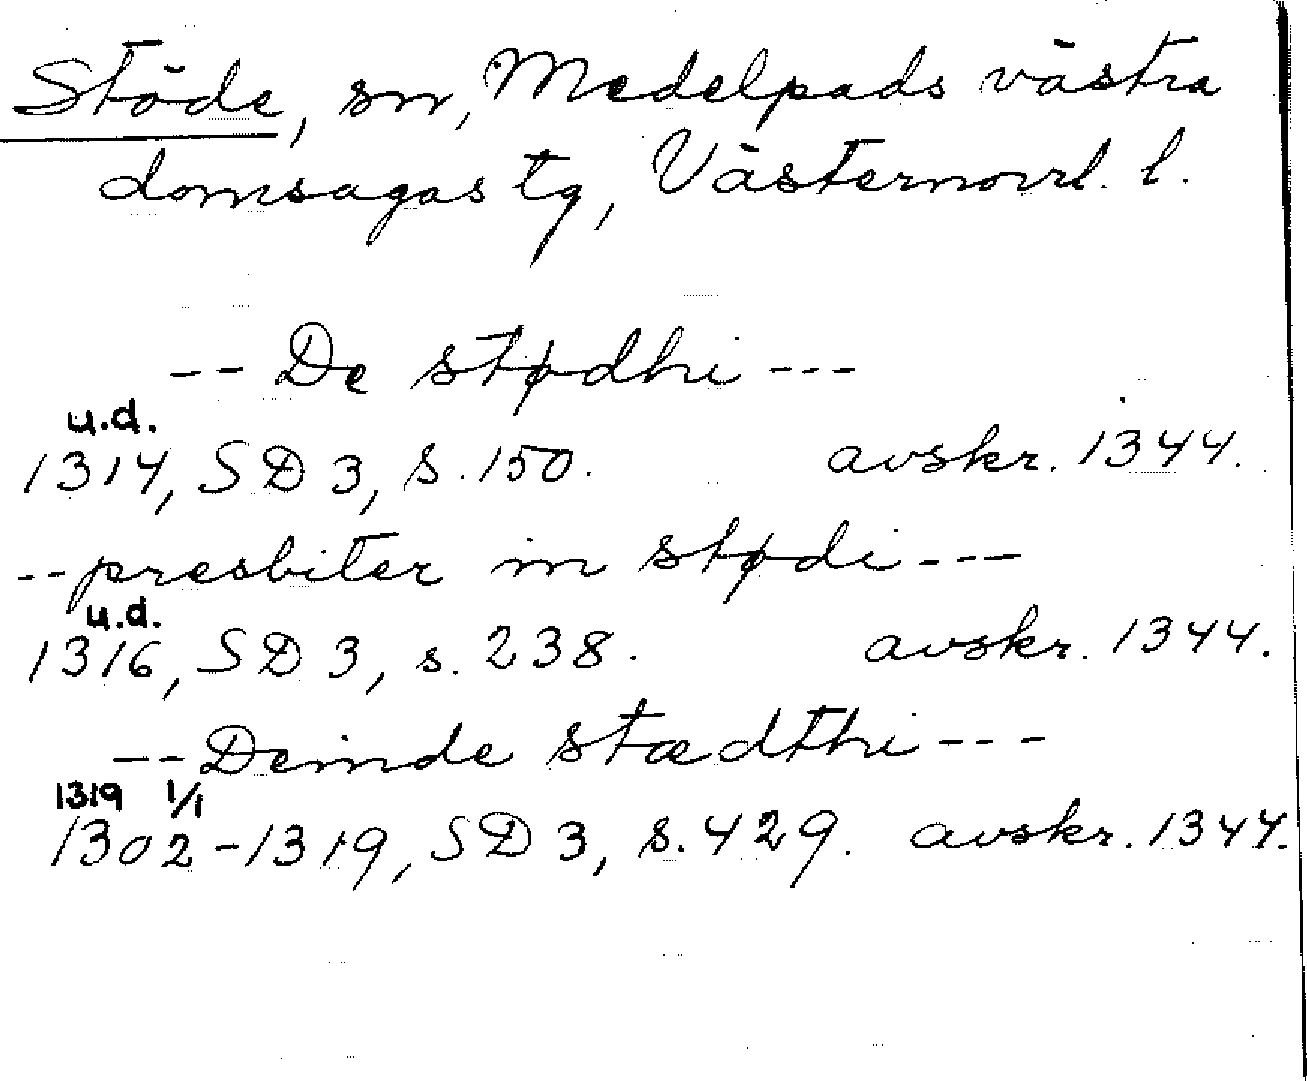 Stöde, sn, Medelpads västra
domsagas tg, Västernorrl. l.
-- De stødhi ---
u.d.
1314, SD 3, s. 150. avskr. 1344.
-- presbiter in stødi ---
u.d.
1316, SD 3, s. 238. avskr. 1344.
-- Deinde stædthi ---
1319 1/1
1302-1319, SD 3, s. 429. avskr. 1344.